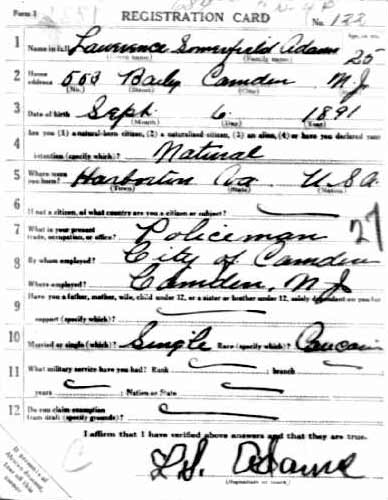 Form 1
REGISTRATION CARD
No. 122
1 Name in full Lawrence Somerfield Adams 25
(Given name) (Family name)
2 Home address 553 Baily Camden N.J.
(No.) (Street) (City)
3 Date of birth Sept. 6 1891
(Month) (Day) (Year)
Are you (1) a natural-born citizen, (2) a naturalized citizen, (3) an alien, (4) or have you declared your
4 intention (specify which)? Natural
5 Where were you born? Harborton Va U.S.A.
(Town) (State) (Nation)
6 If not a citizen, of what country are you a citizen or subject?
7 What is your present trade, occupation, or office? Policeman 27
8 By whom employed? City of Camden
Where employed? Camden, N.J.
9 Have you a father, mother, wife, child under 12, or a sister or brother under 12, solely dependent on you for
support (specify which)?
10 Married or single (which)? Single Race (specify which)? Caucasin
11 What military service have you had? Rank branch
years ; Nation or State
12 Do you claim exemption from draft (specify grounds)?
I affirm that I have verified above answers and that they are true.
L.S. Adams
(Signature or mark)